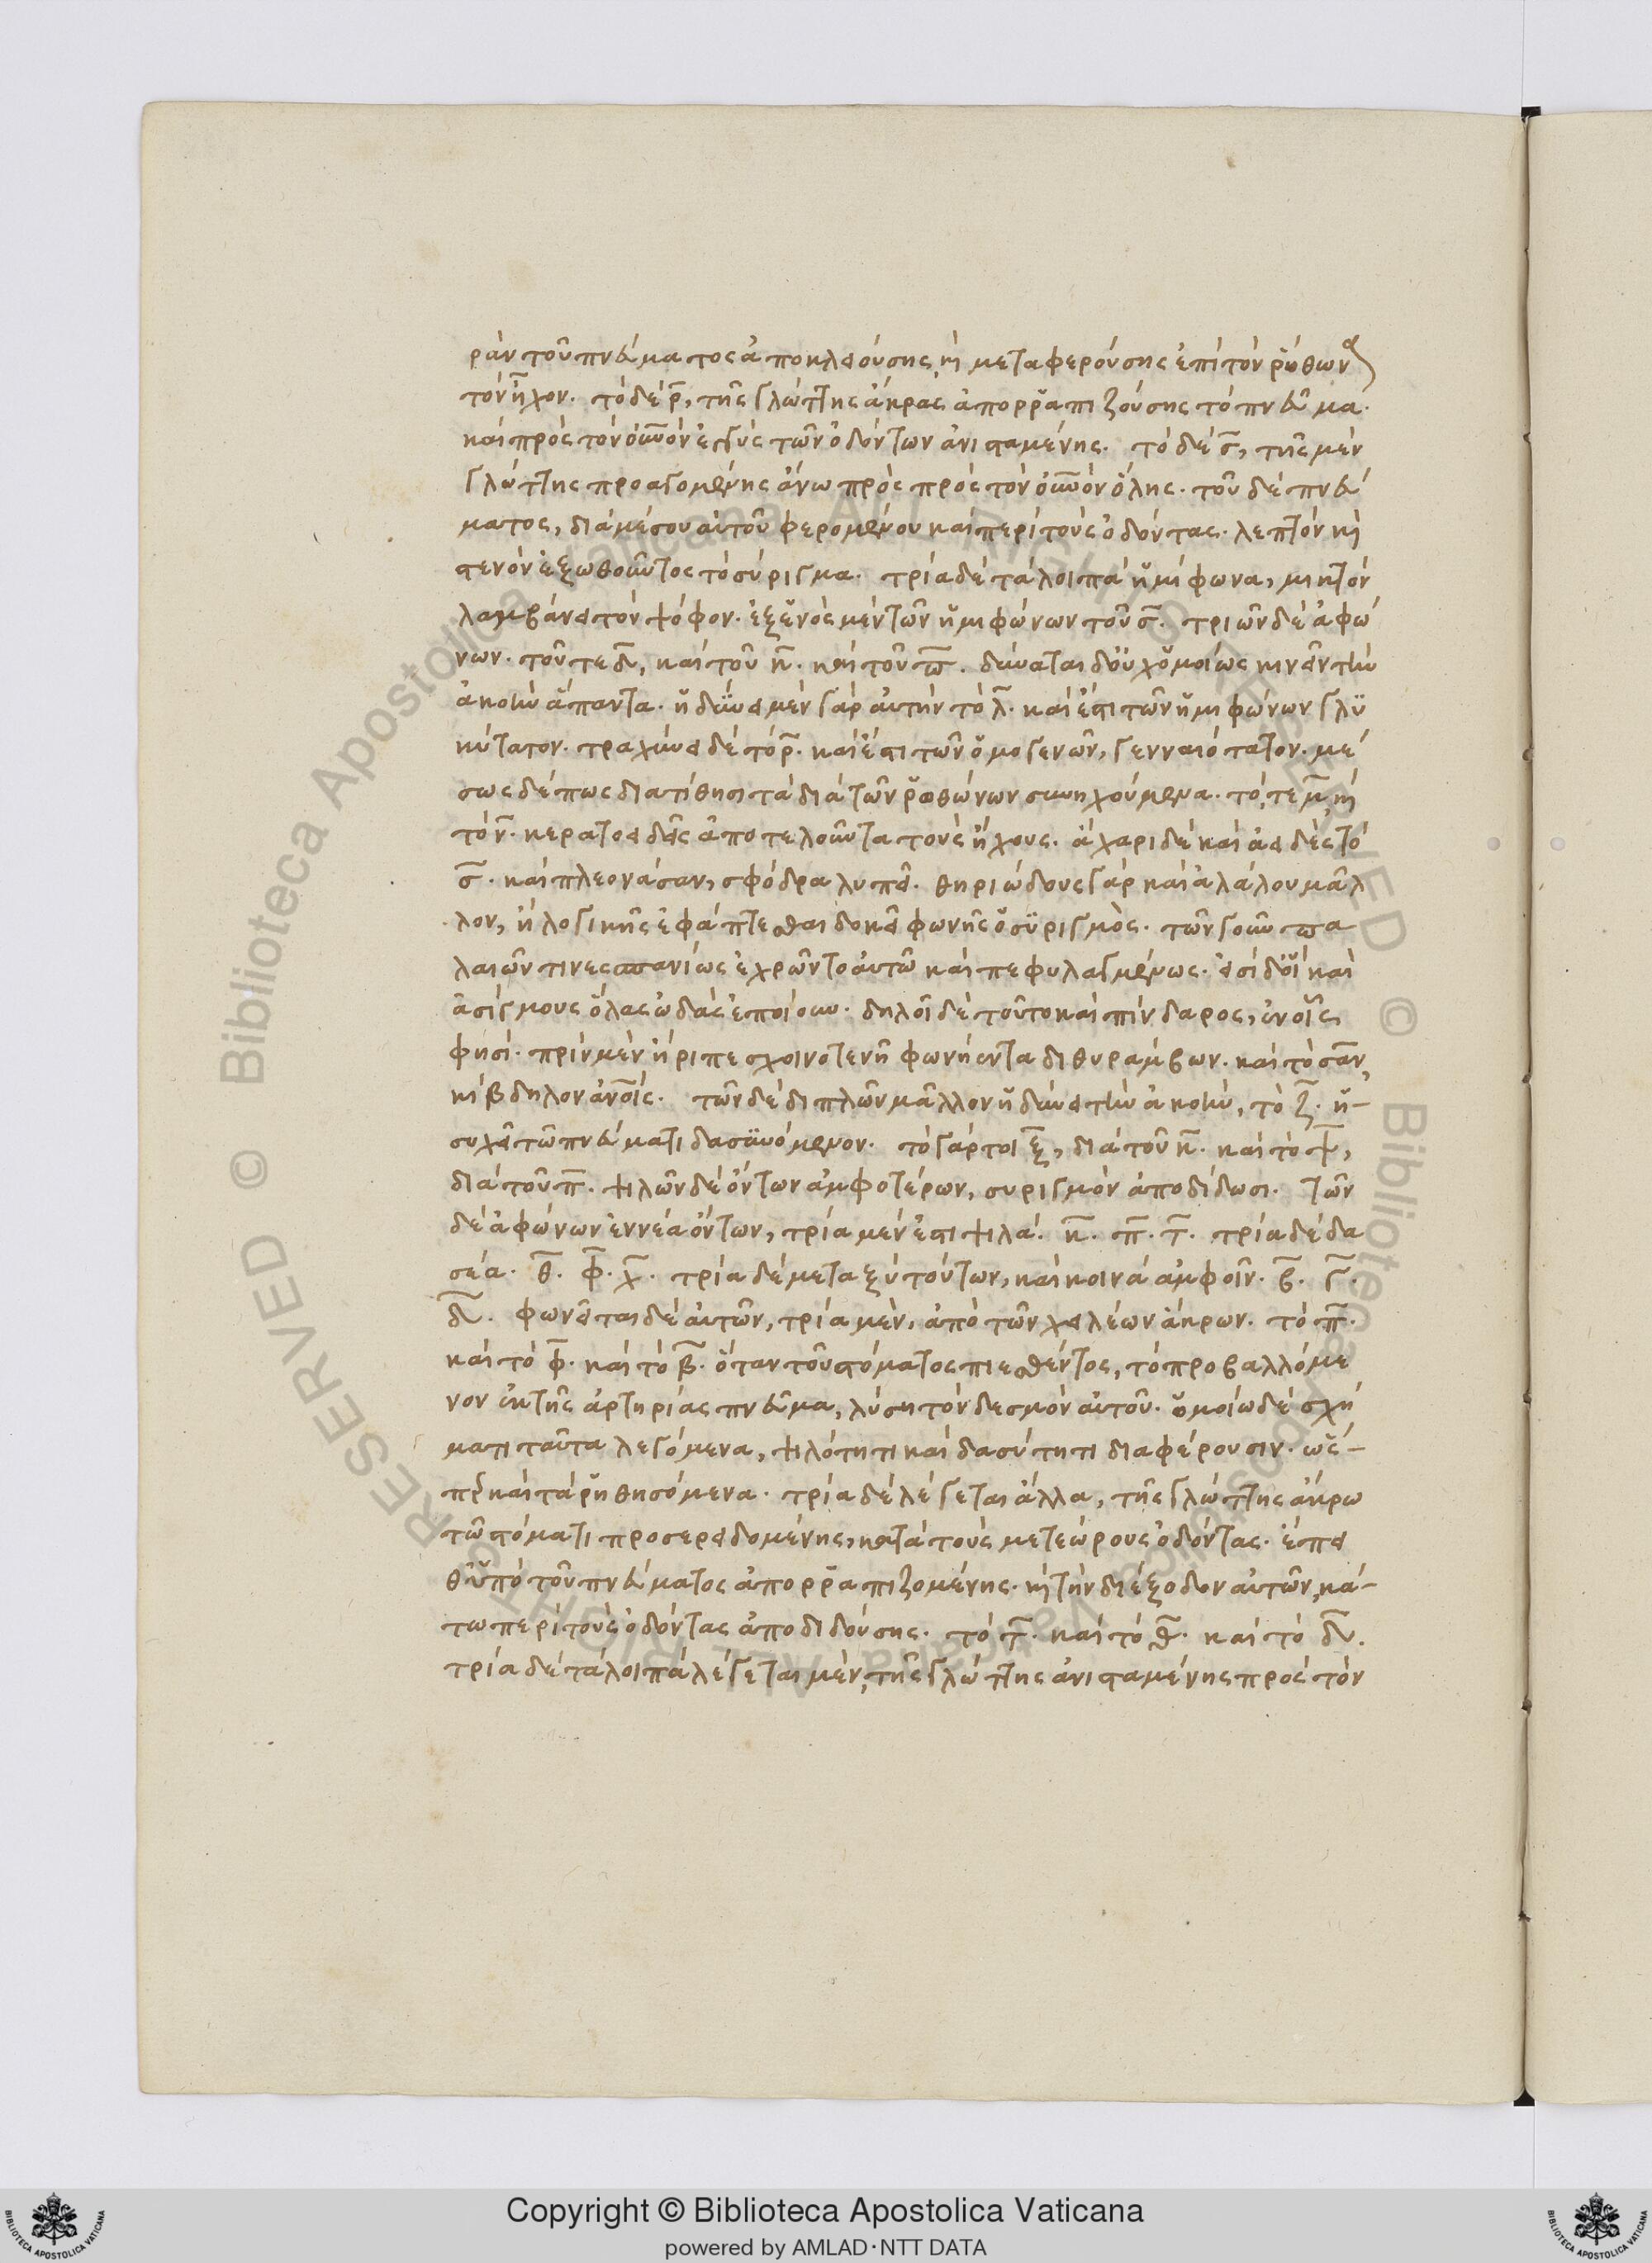 ρὰν τοῦ πνεύματος ἀποκλειούσης, καὶ μεταφερούσης ἐπὶ τὸν ῥώθωνα
τὸν ἦχον. τὸ δὲ ρ̅, τῆς γλώττης ἄκρας ἀπορραπιζούσης τὸ πνεῦμα.
καὶ πρὸς τὸν οὐρανὸν ἐγγὺς τῶν ὀδόντων ἀνισταμένης. τὸ δὲ σ̅, τῆς μὲν
γλώττης προαγομένης ἄνω πρὸς πρὸς τὸν οὐρανὸν ὅλης. τοῦ δὲ πνεύ
ματος, διὰ μέσου αὐτοῦ φερομένου καὶ περὶ τοὺς ὀδόντας. λεπτὸν καὶ
στενὸν ἐξωθοῦντος τὸ σύριγμα. τρία δὲ τὰ λοιπὰ ἡμίφωνα, μικτὸν
λαμβάνει τὸν ψόφον. ἐξ ἑνὸς μὲν τῶν ἡμιφώνων τοῦ σ̅. τριῶν δὲ ἀφώ
νων. τοῦ τε δ̅, καὶ τοῦ κ̅. καὶ τοῦ π̅. δύναται δ' οὐχ ὁμοίως κινεῖν τὴν
ἀκοὴν ἅπαντα. ἡδύνει μὲν γὰρ αὐτὴν τὸ λ̅. καὶ ἔστι τῶν ἡμιφώνων γλυ
κύτατον. τραχύνει δὲ τὸ ρ̅. καὶ ἔστι τῶν ὁμογενῶν, γενναιότατον. μέ
σως δέ πως διατίθησι τὰ διὰ τῶν ῥωθώνων συνηχούμενα. τό, τε μ̅, καὶ
τὸ ν̅. κερατοειδεῖς ἀποτελοῦντα τοὺς ἤχους. ἄχαρι δὲ καὶ ἀειδὲς τὸ
σ̅. καὶ πλεονάσαν, σφόδρα λυπεῖ. θηριώδους γὰρ καὶ ἀλάλου μᾶλ
λον, ἢ λογικῆς ἐφάπτεσθαι δοκεῖ φωνῆς ὁ συριγμός. τῶν γοῦν πα
λαιῶν τινες σπανίως ἐχρῶντο αὐτῶ καὶ πεφυλαγμένως. εἰσὶ δ' οἳ καὶ
ἀσίγμους ὅλας ὠδὰς ἐποίουν. δηλοῖ δὲ τοῦτο καὶ πίνδαρος, ἐν οἷς
φησί. πρὶν μὲν ἤριπε σχοινοτενῆ φωνήεντα διθυράμβων. καὶ τὸ σὰν
κίβδηλον ἀνοῖς. τῶν δὲ διπλῶν μᾶλλον ἡδύνει τὴν ἀκοὴν, τὸ ζ̅. ἡ-
συχῆ τῶ πνεύματι δασυνόμενον. τὸ γάρ τοι ξ̅, διὰ τοῦ κ̅. καὶ τὸ ψ̅,
διὰ τοῦ π̅. ψιλῶν δὲ ὄντων ἀμφοτέρων, συριγμὸν ἀποδίδωσι. τῶν
δὲ ἀφώνων ἐννέα ὄντων, τρία μέν ἐστι ψιλά. κ̅. π̅. τ̅. τρία δὲ δα
σέα. θ̅. φ̅. χ̅. τρία δὲ μεταξὺ τούτων, καὶ κοινὰ ἀμφοῖν. β̅. γ̅.
δ̅. φωνεῖται δὲ αὐτῶν, τρία μὲν, ἀπὸ τῶν χειλέων ἄκρων. τὸ π̅.
καὶ τὸ φ̅. καὶ τὸ β̅. ὅταν τοῦ στόματος πιεσθέντος, τὸ προβαλλόμε
νον ἐκ τῆς ἀρτηρίας πνεῦμα, λύση τὸν δεσμὸν αὐτοῦ. ὁμοίω δὲ σχή
ματι ταῦτα λεγόμενα, ψιλότητι καὶ δασύτητι διαφέρουσιν. ὥσ-
περ καὶ τὰ ῥηθησόμενα. τρία δὲ λέγεται ἄλλα, τῆς γλώττης ἄκρω
τῶ στόματι προσερειδομένης, κατὰ τοὺς μετεώρους ὀδόντας. ἔπει
θ' ὑπὸ τοῦ πνεύματος ἀπορραπιζομένης. καὶ τὴν διέξοδον αὐτῶν, κά-
τω περὶ τοὺς ὀδόντας ἀποδιδούσης. τὸ τ̅. καὶ τὸ θ̅. καὶ τὸ δ̅.
τρία δὲ τὰ λοιπὰ λέγεται μὲν, τῆς γλώττης ἀνισταμένης πρὸς τὸν
© Biblioteca Apostolica Vaticana ALL RIGHTS RESERVED
Copyright © Biblioteca Apostolica Vaticana
powered by AMLAD·NTT DATA
BIBLIOTECA APOSTOLICA VATICANA
BIBLIOTECA APOSTOLICA VATICANA